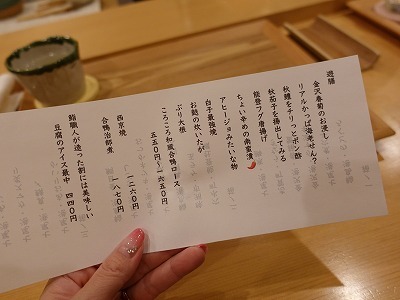 遊膳
金沢春菊のお浸し
リアルかっぱ海老せん?
秋鱧をチリっとポン酢
秋茄子を揚出してみる
能登フグ唐揚げ
ちょい辛めの南蛮漬
アヒージョみたいな物
白子最強焼
お麩の炊いたが
ぶり大根
ころころ和風合鴨ロース
五五〇円〜一六五〇円
西京焼 一二六〇円
合鴨治部煮 一八七〇円
鮨職人が造った割には美味しい
豆腐のアイス最中 四四〇円